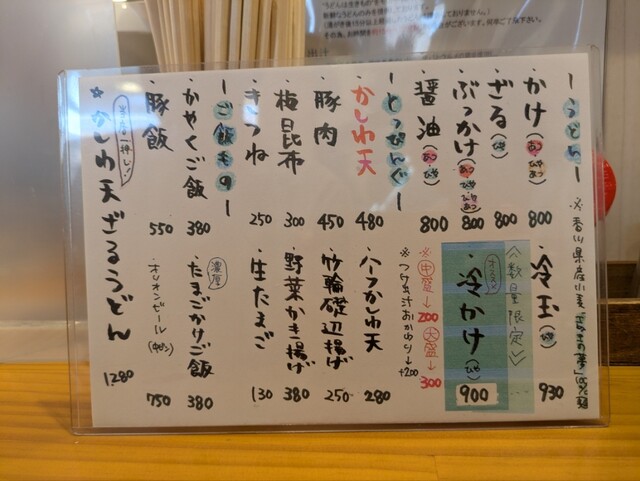 ーうどんー
※香川県産小麦「さぬきの夢」100%麺
・かけ(あつ・ひやあつ) 800
・ざる(ひや) 800
・ぶっかけ(あつ・ひや・ひやあつ) 800
・醤油(あつ・ひや) 800
・冷玉(ひや) 930
〈数量限定〉
オススメ
・冷かけ(ひや) 900
※中盛→200 大盛→300
※つけ汁おかわり→+200
ーとっぴんぐー
・かしわ天 480
・豚肉 450
・梅昆布 300
・きつね 250
・ハーフかしわ天 280
・竹輪磯辺揚げ 250
・野菜かき揚げ 380
・生たまご 130
ーご飯ものー
・かやくご飯 380
・豚飯 550
濃厚
・たまごかけご飯 380
・オリオンビール(中ビン) 750
★かしわ天ざるうどん 1280